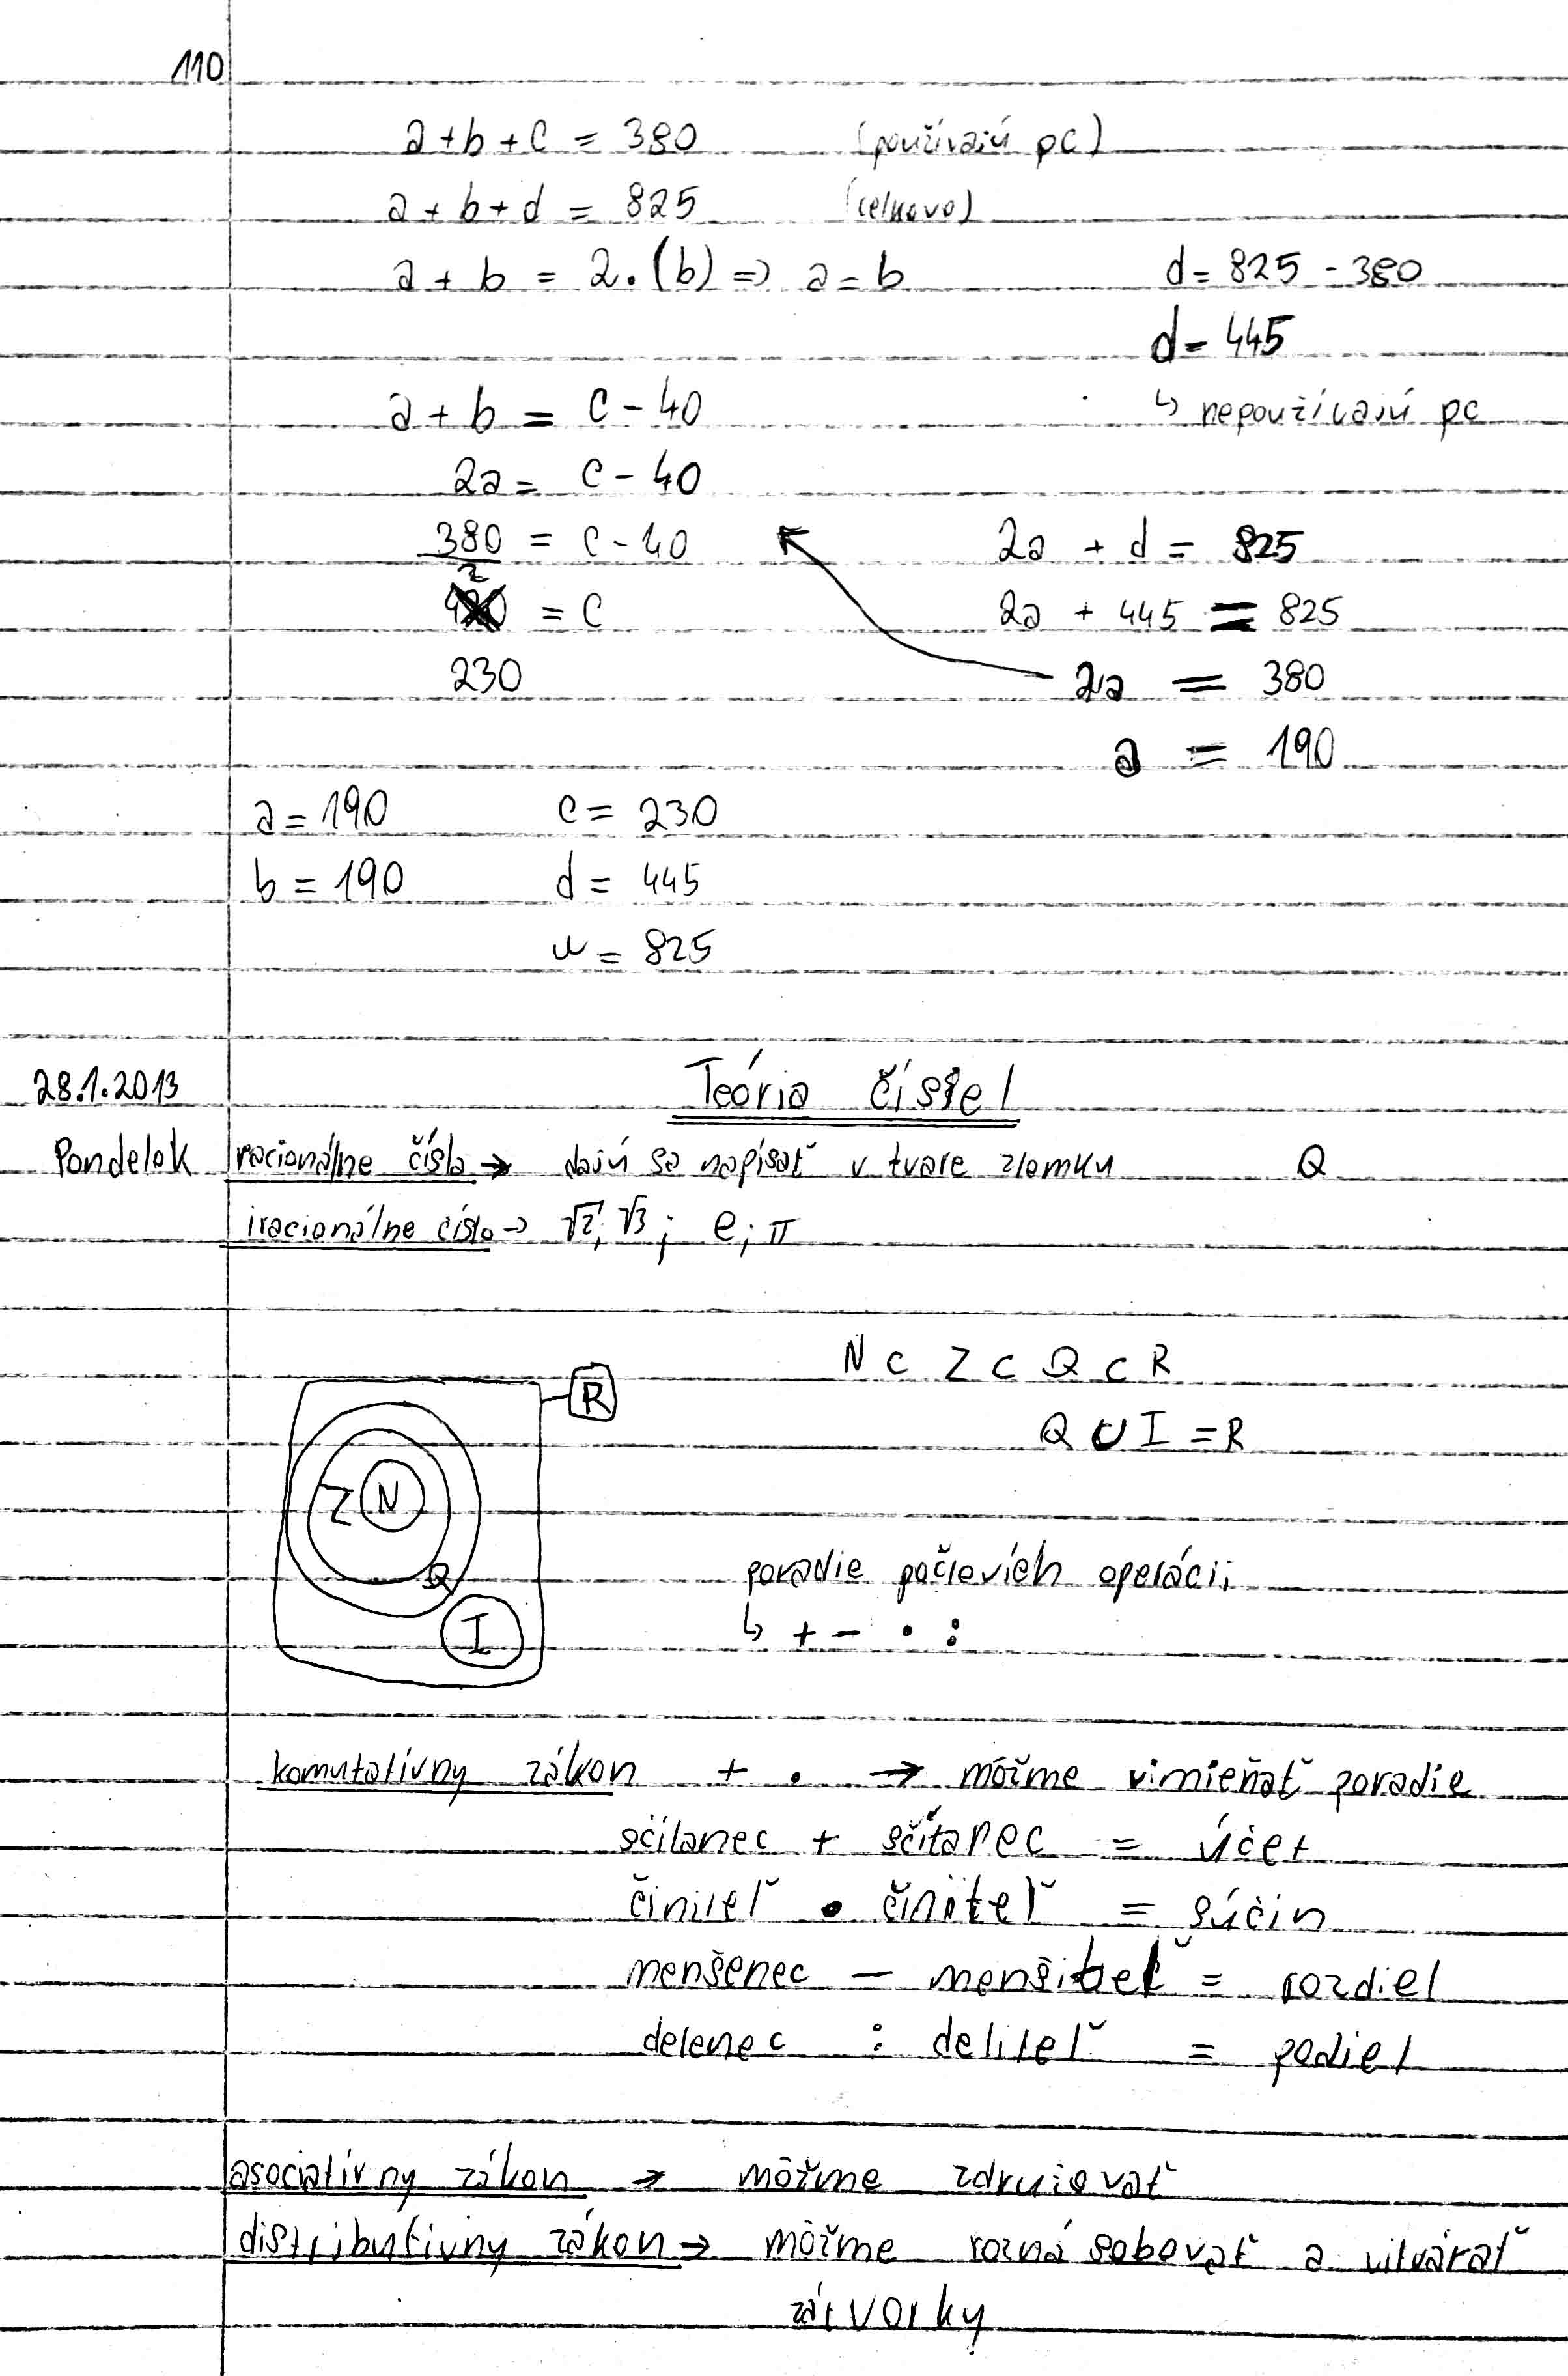 110
a + b + c = 380 (používajú pc)
a + b + d = 825 (celkovo)
a + b = 2. (b) => a = b d = 825 - 380
d = 445
a + b = c - 40 ↳ nepoužívajú pc
2a = c - 40
380/2 = c - 40 2a + d = 825
= c 2a + 445 = 825
230 2a = 380
a = 190
a = 190 c = 230
b = 190 d = 445
u = 825
28.1.2013 Teória čísiel
Pondelok racionálne čísla → dajú sa napísať v tvare zlomku Q
iracionálne čísla → √2; √3; e; π
R
N ⊂ Z ⊂ Q ⊂ R
Q ∪ I = R
Z N
Q
poradie počtovích operácií
I
↳ + - • :
komutatívny zákon + • → môžme vimieňať poradie
sčítanec + sčítanec = účet
činiteľ • činiteľ = súčin
menšenec - menšiteľ = rozdiel
delenec : deliteľ = podiel
asociatívny zákon → môžme združovať
distributívny zákon → môžme roznásobovať a vitvárať
zátvorky